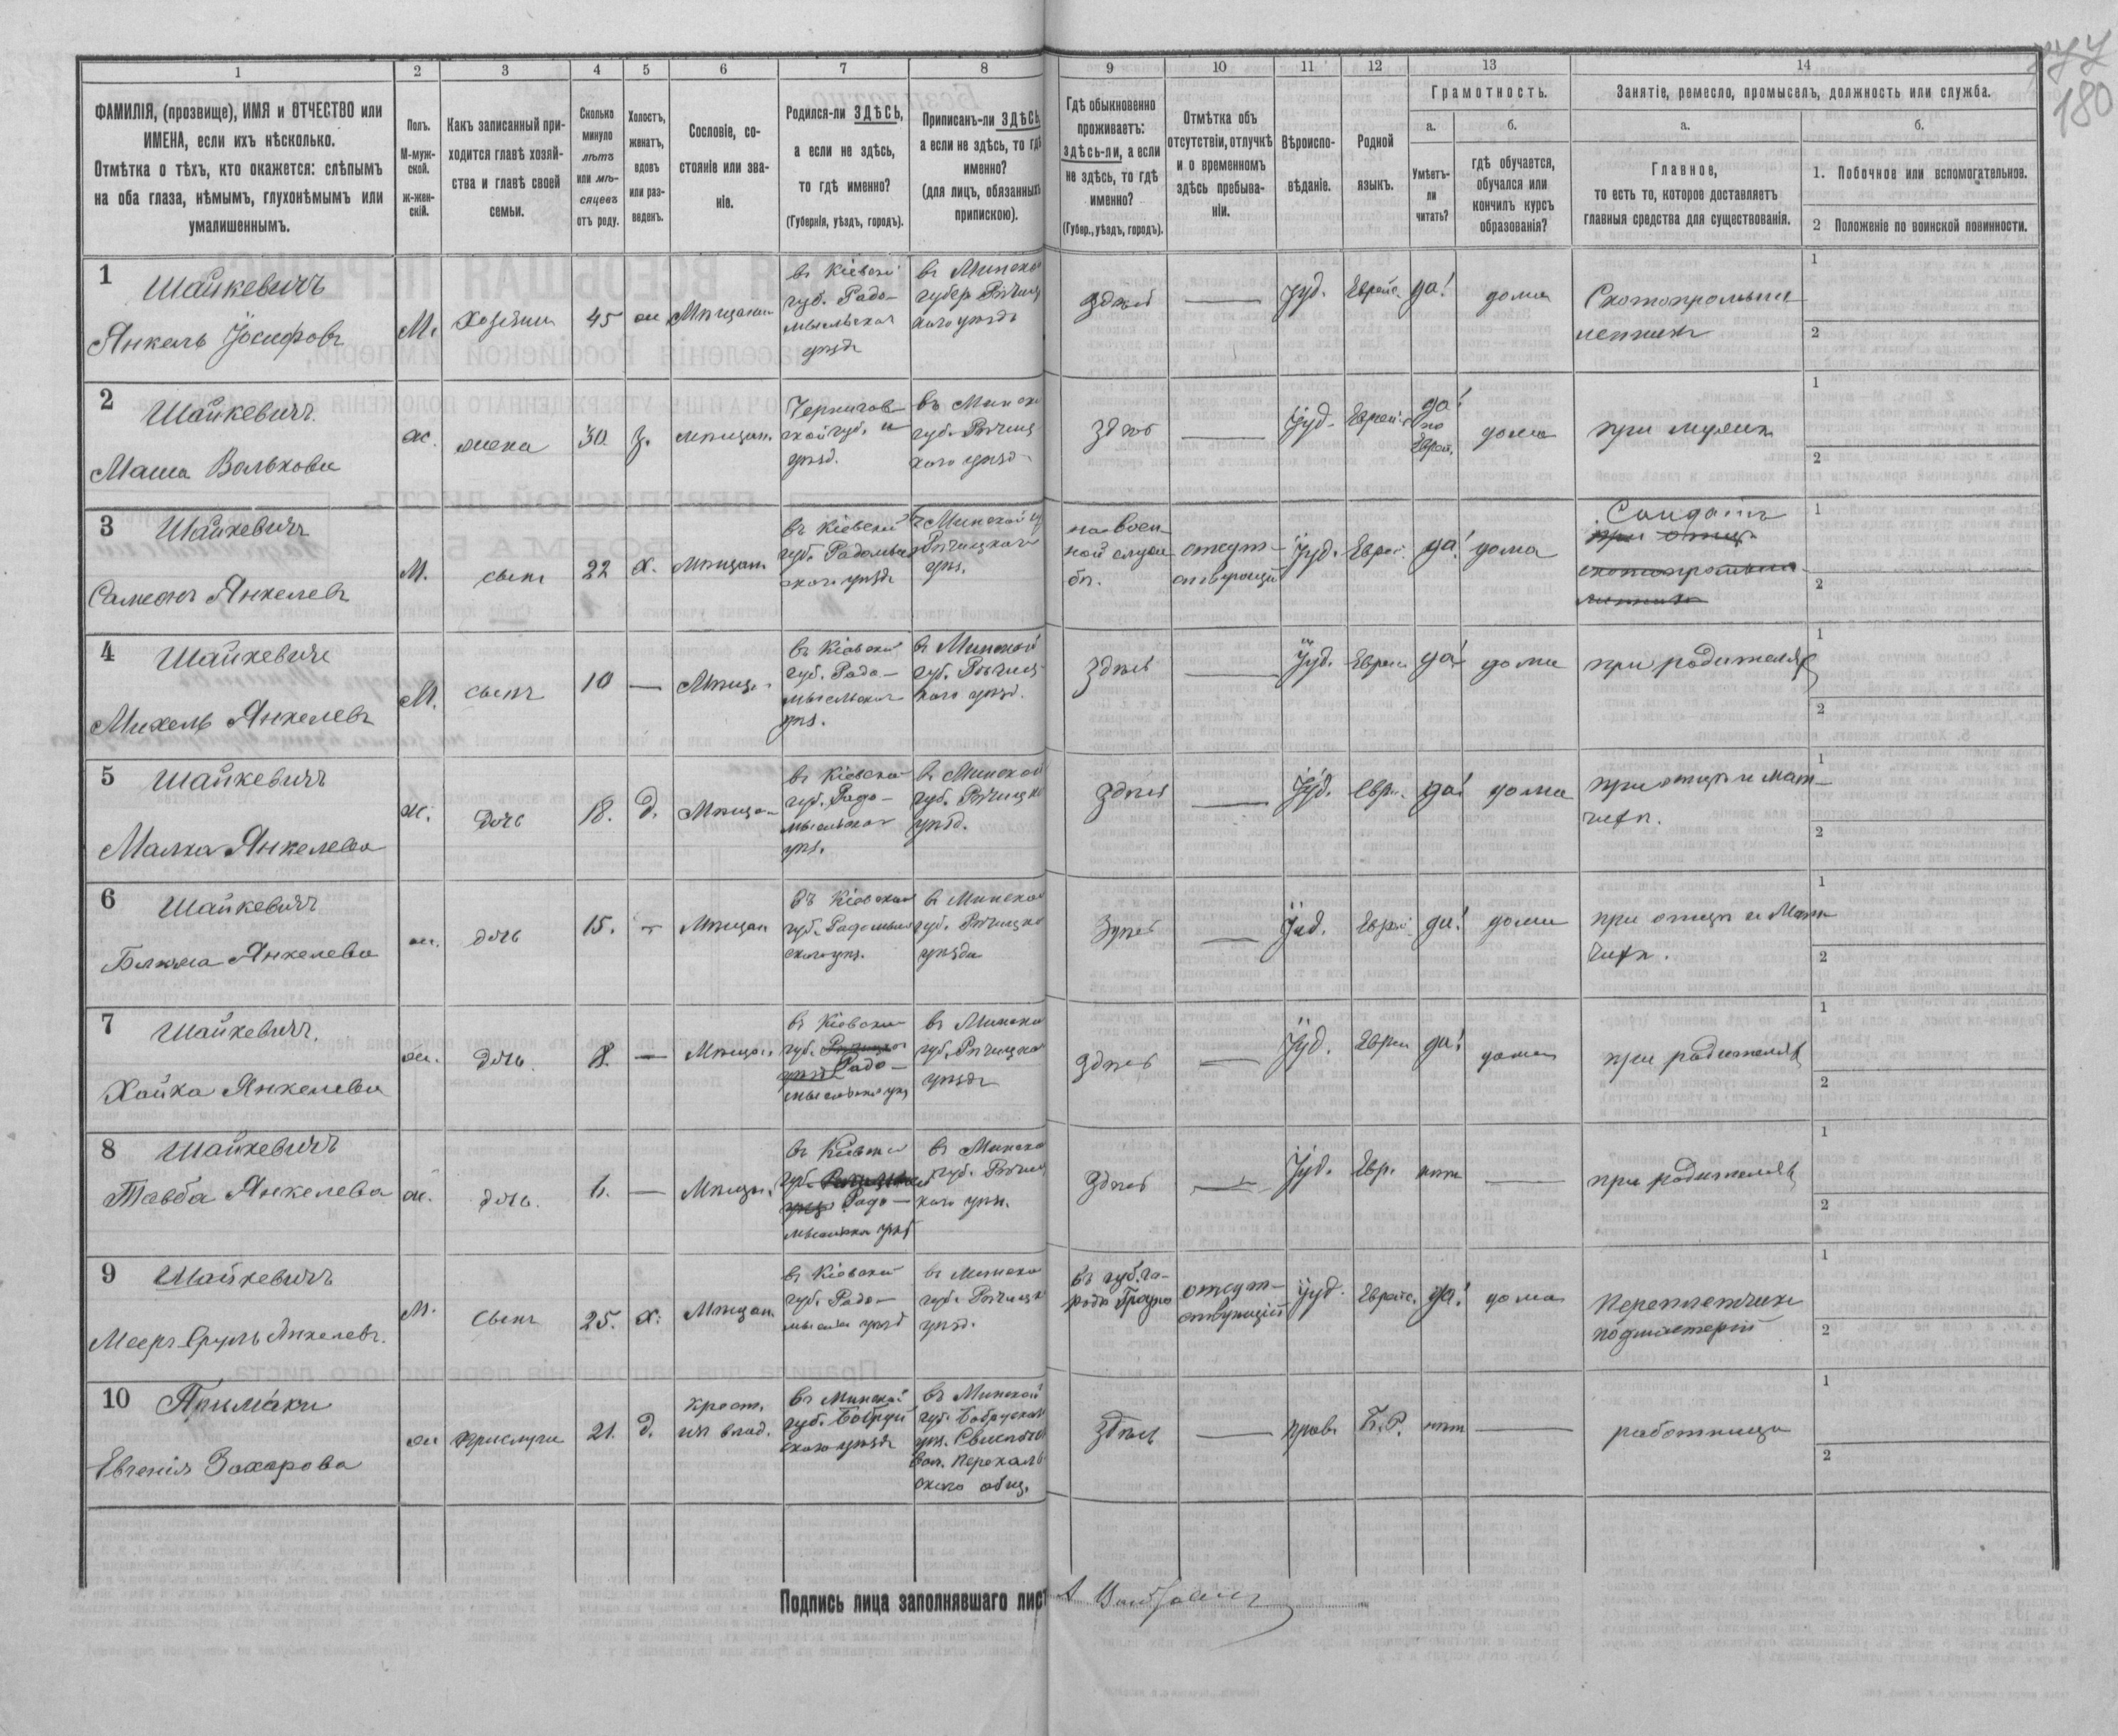 180
1 2 3 4 5 6 7 8 9 10 11 12 13 14
ФАМИЛІЯ, (прозвище), ИМЯ и ОТЧЕСТВО или
ИМЕНА, если ихъ нѣсколько.
Отмѣтка о тѣхъ, кто окажется: слѣпымъ
на оба глаза, нѣмымъ, глухонѣмымъ или
умалишеннымъ.
Полъ.
М-муж-
ской.
ж-жен-
скій.
Какъ записанный при-
ходится главѣ хозяй-
ства и главѣ своей
семьи.
Сколько
минуло
лѣтъ
или мѣ-
сяцевъ
отъ роду.
Холостъ,
женатъ,
вдовъ
или раз-
веденъ.
Сословіе, со-
стояніе или зва-
ніе.
Родился-ли ЗДѢСЬ,
а если не здѣсь,
то гдѣ именно?
(Губернія, уѣздъ, городъ).
Приписанъ-ли ЗДѢСЬ,
а если не здѣсь, то гдѣ
именно?
(для лицъ, обязанныхъ
припискою).
Гдѣ обыкновенно
проживаетъ:
здѣсь-ли, а если
не здѣсь, то гдѣ
именно?
(Губер., уѣздъ, городъ).
Отмѣтка объ
отсутствіи, отлучкѣ
и о временномъ
здѣсь пребыва-
ніи.
Вѣроиспо-
вѣданіе.
Родной
языкъ.
Грамотность.
а.
Умѣетъ-
ли
читать?
б.
гдѣ обучается,
обучался или
кончилъ курсъ
образованія?
Занятіе, ремесло, промыселъ, должность или служба.
а.
Главное,
то есть то, которое доставляетъ
главныя средства для существованія.
б.
1. Побочное или вспомогательное.
2 Положеніе по воинской повинности.
1 Шайкевичъ
Янкель Іосифовъ
М. Хозяинъ 45 ж Мѣщанин
въ Кіевской
губ. Радо-
мысльского
уѣздѣ
въ Минской
губер. Рѣчиц
кого уѣздѣ
здѣсь — Іуд. Еврейс. да! дома
Скотопромыш
ленникъ
1
2
2 Шайкевичъ
Маша Вольхова
ж. жена 30. з. мѣщан.
Чернигов
ской губ. и
уѣзд.
въ Минско
губ. Рѣчиц
кого уѣзд
здѣсь — Іуд. Еврей
да!
по
Еврей.
дома при мужѣ
1
2
3 Шайкевичъ
Самсонъ Янкелев
М. сынъ 22 х. Мѣщан.
въ Кіевской
губ. Радомысл
ского уѣздѣ
в Минской гу
Рѣчицкого
уѣз.
на воен-
ной служ
бѣ.
отсут-
ствующій
Іуд. Еврей. да! дома
Солдатъ
при отцѣ
скотопромыш
ленникъ
1
2
4 Шайкевичъ
Михель Янкелевъ
М. сынъ 10 — Мѣщ.
въ Кіевской
губ. Радо-
мысльского
уѣз.
въ Минской
губ. Рѣчиц
кого уѣзд.
здѣсь — Іуд. Еврей да! дома при родителях
1
2
5 Шайкевичъ
Малка Янкелева
ж. дочь 18. д. Мѣщан
въ Кіевско
губ. Радо-
мысльског
уѣз.
въ Минской
губ. Рѣчицко
уѣзд.
здѣсь — Іуд. Евр. да! дома
при отцѣ и мат-
чихѣ.
1
2
6 Шайкевичъ
Янкелева
ж. дочь 15. — Мѣщан
Въ Кіевской
губ. Радомысл
ского уѣз.
в Минской
губ. Рѣчицко
уѣзда
здѣсь — Іуд. Еврей да! дома
при отцѣ и Мат
чихѣ.
1
2
7 Шайкевичъ.
Хайка Янкелева
ж. дочь. 8. — Мѣщан.
въ Кіевской
губ. Рѣчицког
уѣзд Радо-
мысльского уѣз
въ Минско
губ. Рѣчицко
уѣздѣ
здѣсь — Іуд. Еврей да! дома при родителях
1
2
8 Шайкевичъ
Тавба Янкелева
ж. дочь. 6. — Мѣщ.
въ Кіевско
губ.
уѣзд Радо-
мысльского уѣз
въ Минско
губ. Рѣчиц
кого уѣз.
здѣсь — Іуд. Евр. нѣт — при родителях
1
2
9 Шайкевичъ
Мееръ-Сруль Янкелевъ.
М. сынъ 25. х. Мѣщан.
въ Кіевской
губ. Радо-
мысльск уѣзд
въ Минско
губ. Рѣчицк
уѣзд.
въ губ. го-
родѣ Гродно
отсут-
ствующій
Іуд. Еврейс. да! дома
Переплетчик
подмастерій
1
2
10 Примаки
Евгенія Захарова
ж прислуги 21. д.
крест.
изъ влад.
въ Минской
губ. Бобруй
ского уѣздѣ
въ Минской
губ. Бобруском
уѣз. Свислочс
вол.
ского общ.
здѣсь — прав. Б.Р. нѣт — работница
1
2
Подпись лица заполнявшаго лист